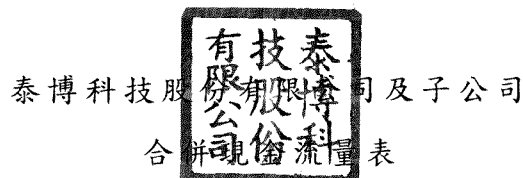 泰博科技股份有限公司及子公司
合併現金流量表
泰博科
技股份
有限公司